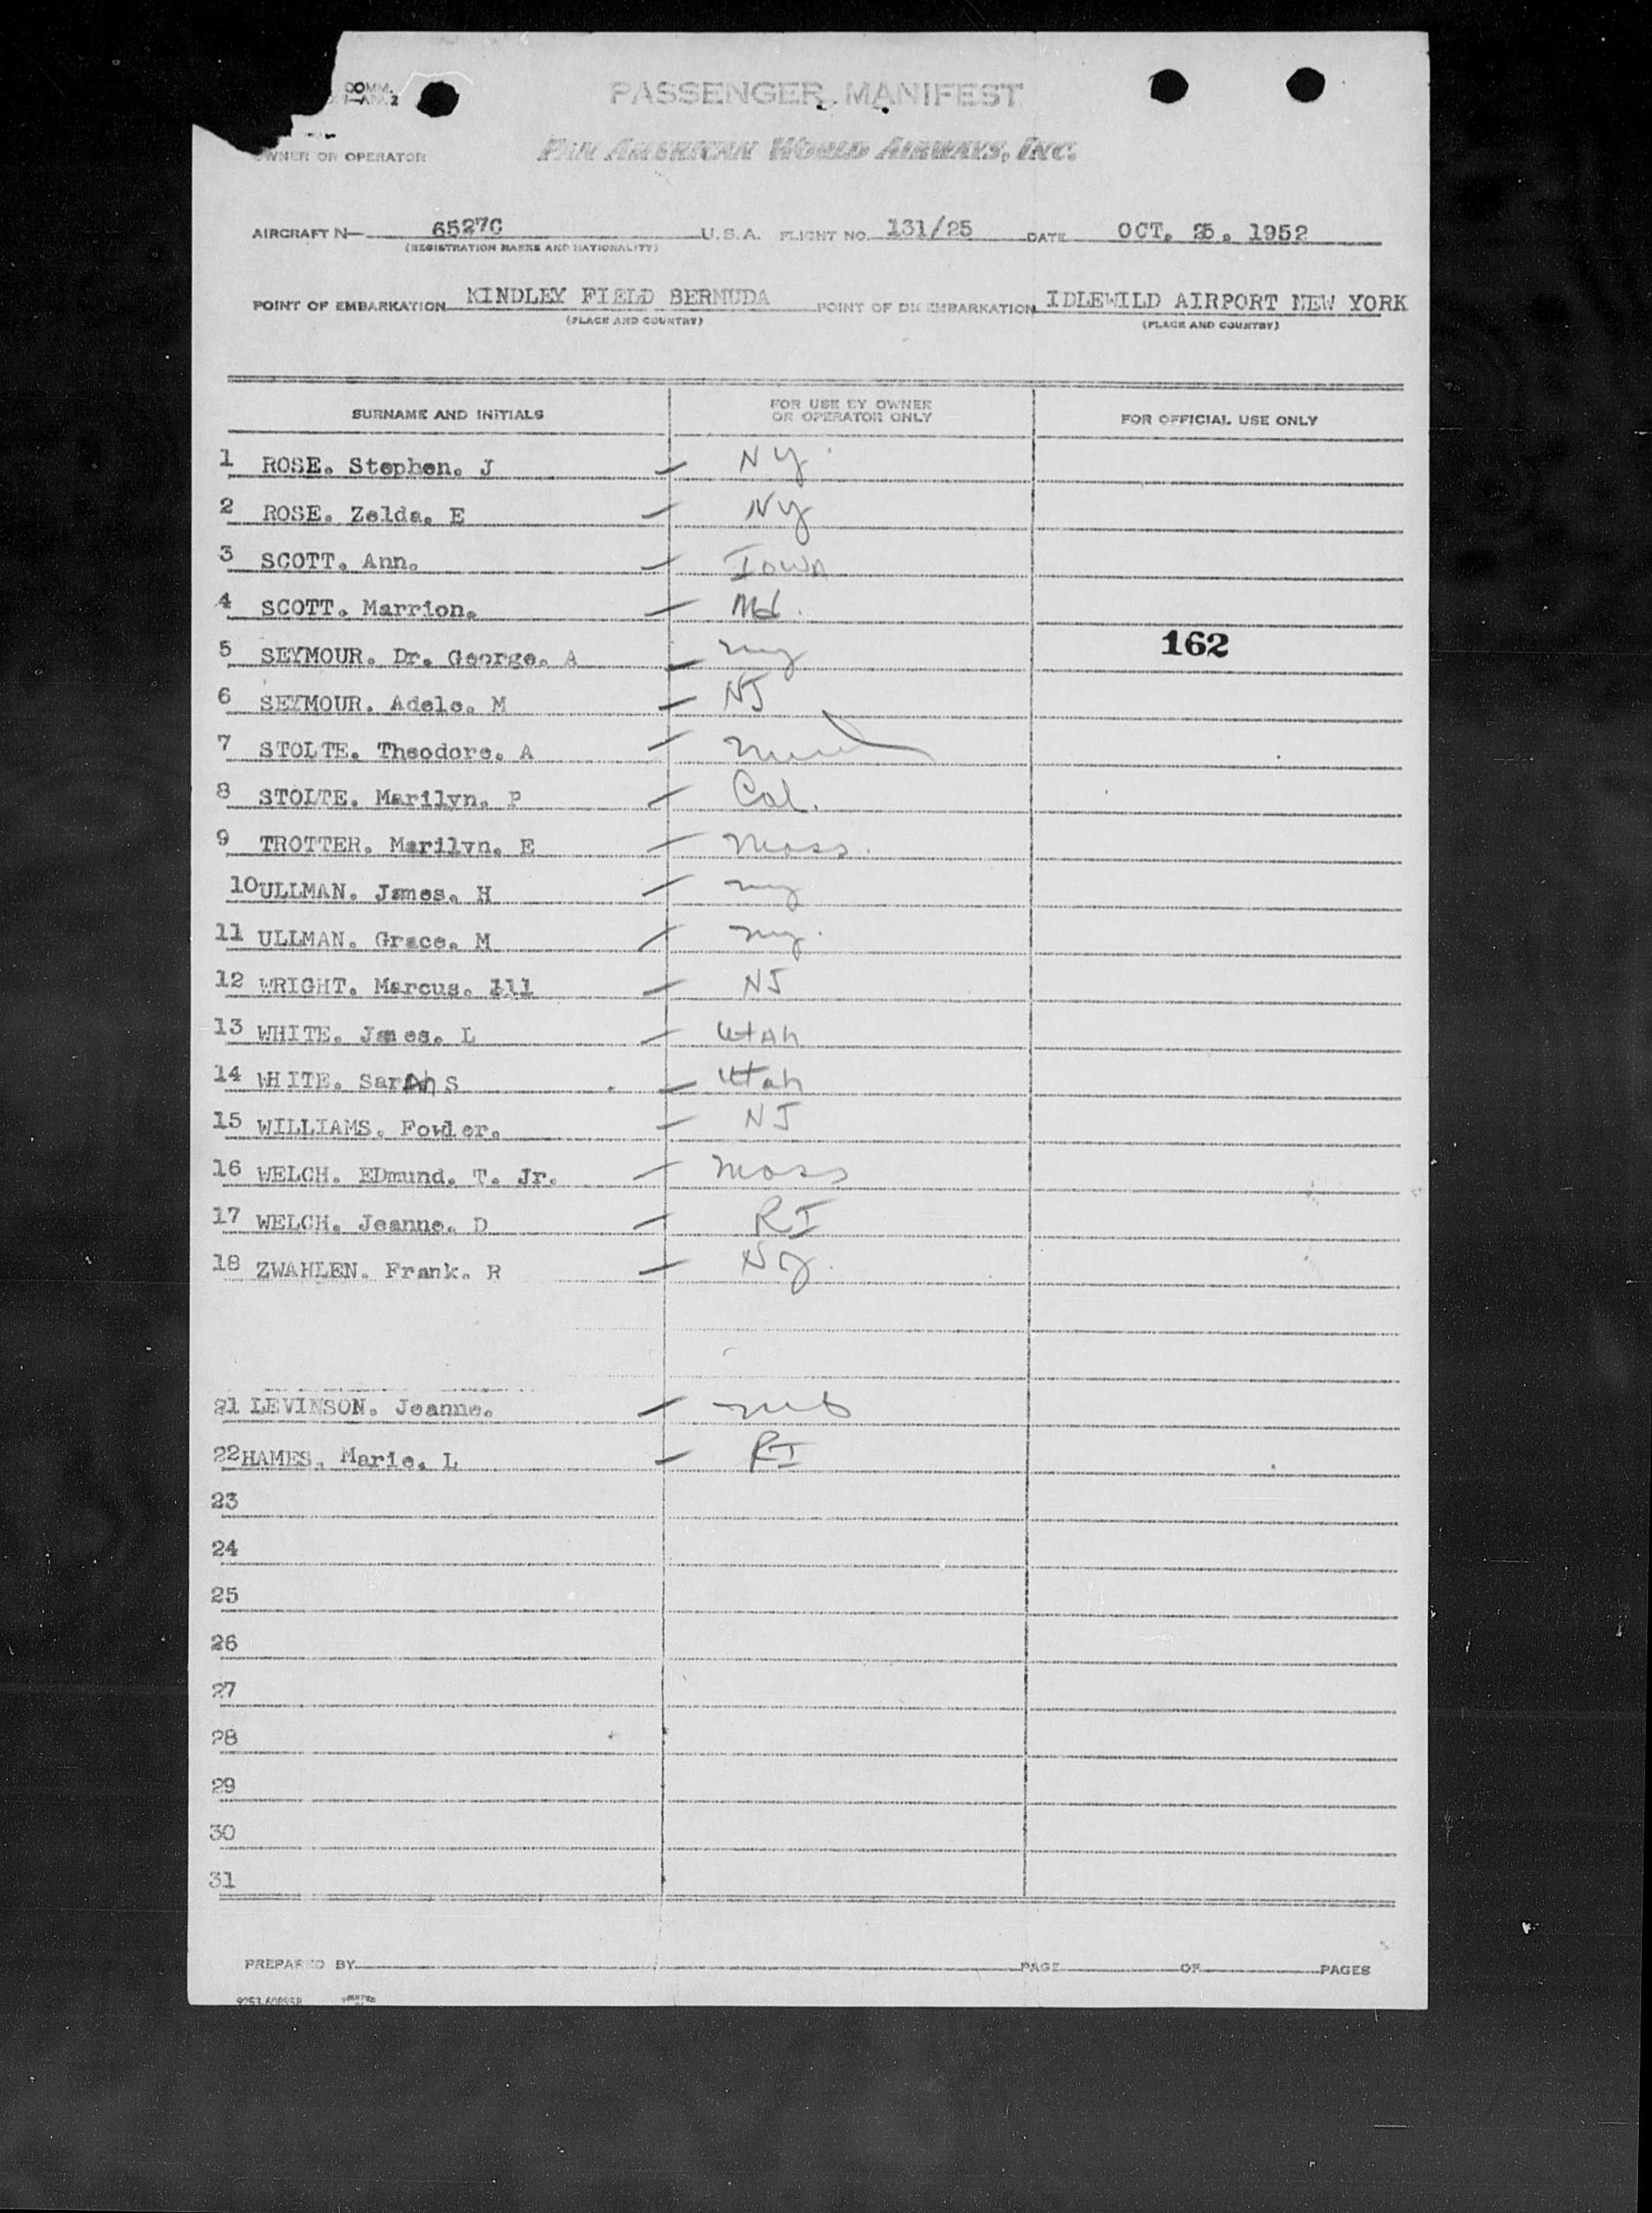 COMM.
PASSENGER MANIFEST
OWNER OR OPERATOR PAN AMERICAN WORLD AIRWAYS, INC.
AIRCRAFT N— 6527C U.S.A. FLIGHT NO. 131/25 DATE OCT. 25. 1952
(REGISTRATION MARKS AND NATIONALITY)
POINT OF EMBARKATION KINDLEY FIELD BERMUDA POINT OF DISEMBARKATION IDLEWILD AIRPORT NEW YORK
(PLACE AND COUNTRY) (PLACE AND COUNTRY)
SURNAME AND INITIALS FOR USE BY OWNER OR OPERATOR ONLY FOR OFFICIAL USE ONLY
1 ROSE. Stephen. J — NY
2 ROSE. Zelda. E — NY
3 SCOTT. Ann. — Iowa
4 SCOTT. Marrion. — Md.
5 SEYMOUR. Dr. George. A — ny 162
6 SEYMOUR. Adele. M — NJ
7 STOLTE. Theodore. A —
8 STOLTE. Marilyn. P — Cal.
9 TROTTER. Marilyn. E — Mass.
10 ULLMAN. James. H — ny
11 ULLMAN. Grace. M — ny.
12 WRIGHT. Marcus. 111 — NJ
13 WHITE. James. L — Utah
14 WHITE. Sarah S — Utah
15 WILLIAMS. Fowler. — NJ
16 WELCH. EDmund. T. Jr. — Mass
17 WELCH. Jeanne. D — RI
18 ZWAHLEN. Frank. R — NY.
21 LEVINSON. Jeanne. —
22 HAMES. Marie. L — RI
23
24
25
26
27
28
29
30
31
PREPARED BY PAGE OF PAGES